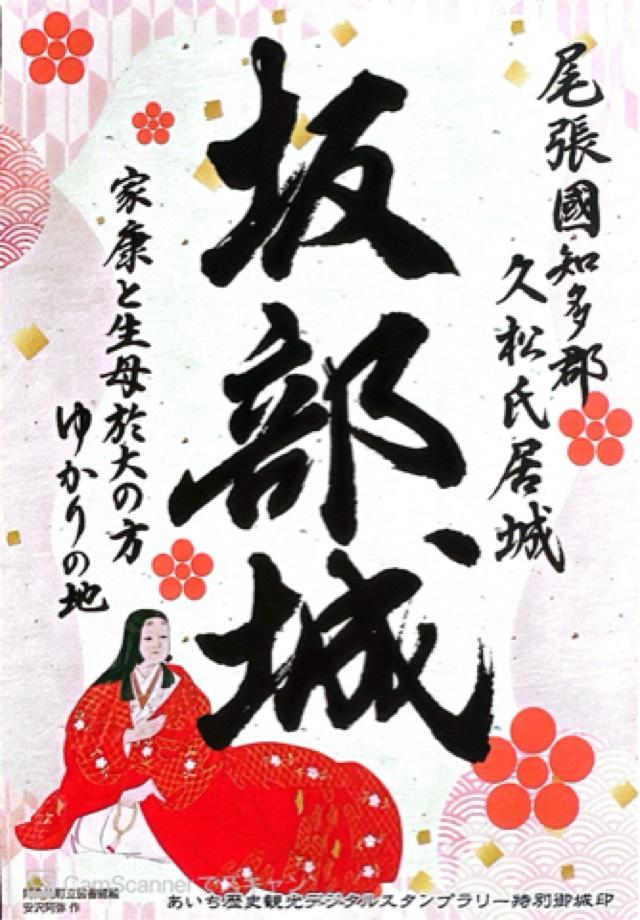 尾張國知多郡
久松氏居城
坂部城
家康と生母於大の方
ゆかりの地
安沢阿弥 作
CamScanner でスキャン
あいち歴史観光デジタルスタンプラリー特別御城印